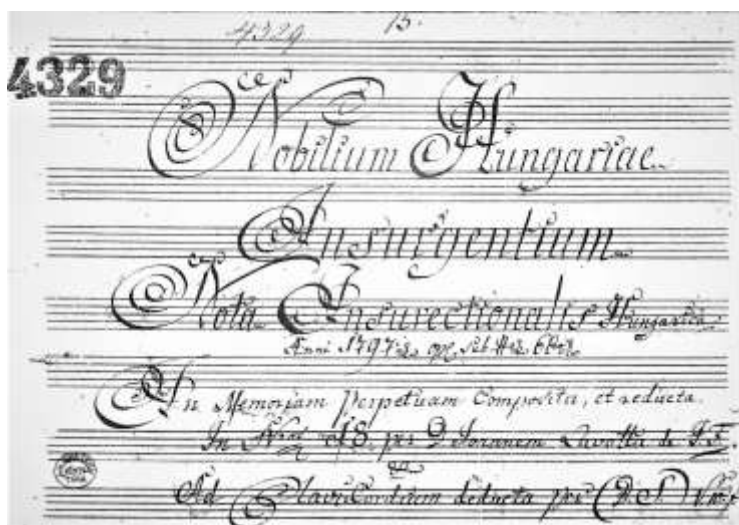 4329 13.
4329
Nobilium Hungariae
Insurgentium
Nota Insurectionalis Hungarica
Anni 1797
In Memoriam perpetuam Composita, et reducta
In 18 per D Joannem Lavotta de
Ad Clavicordium deducta per